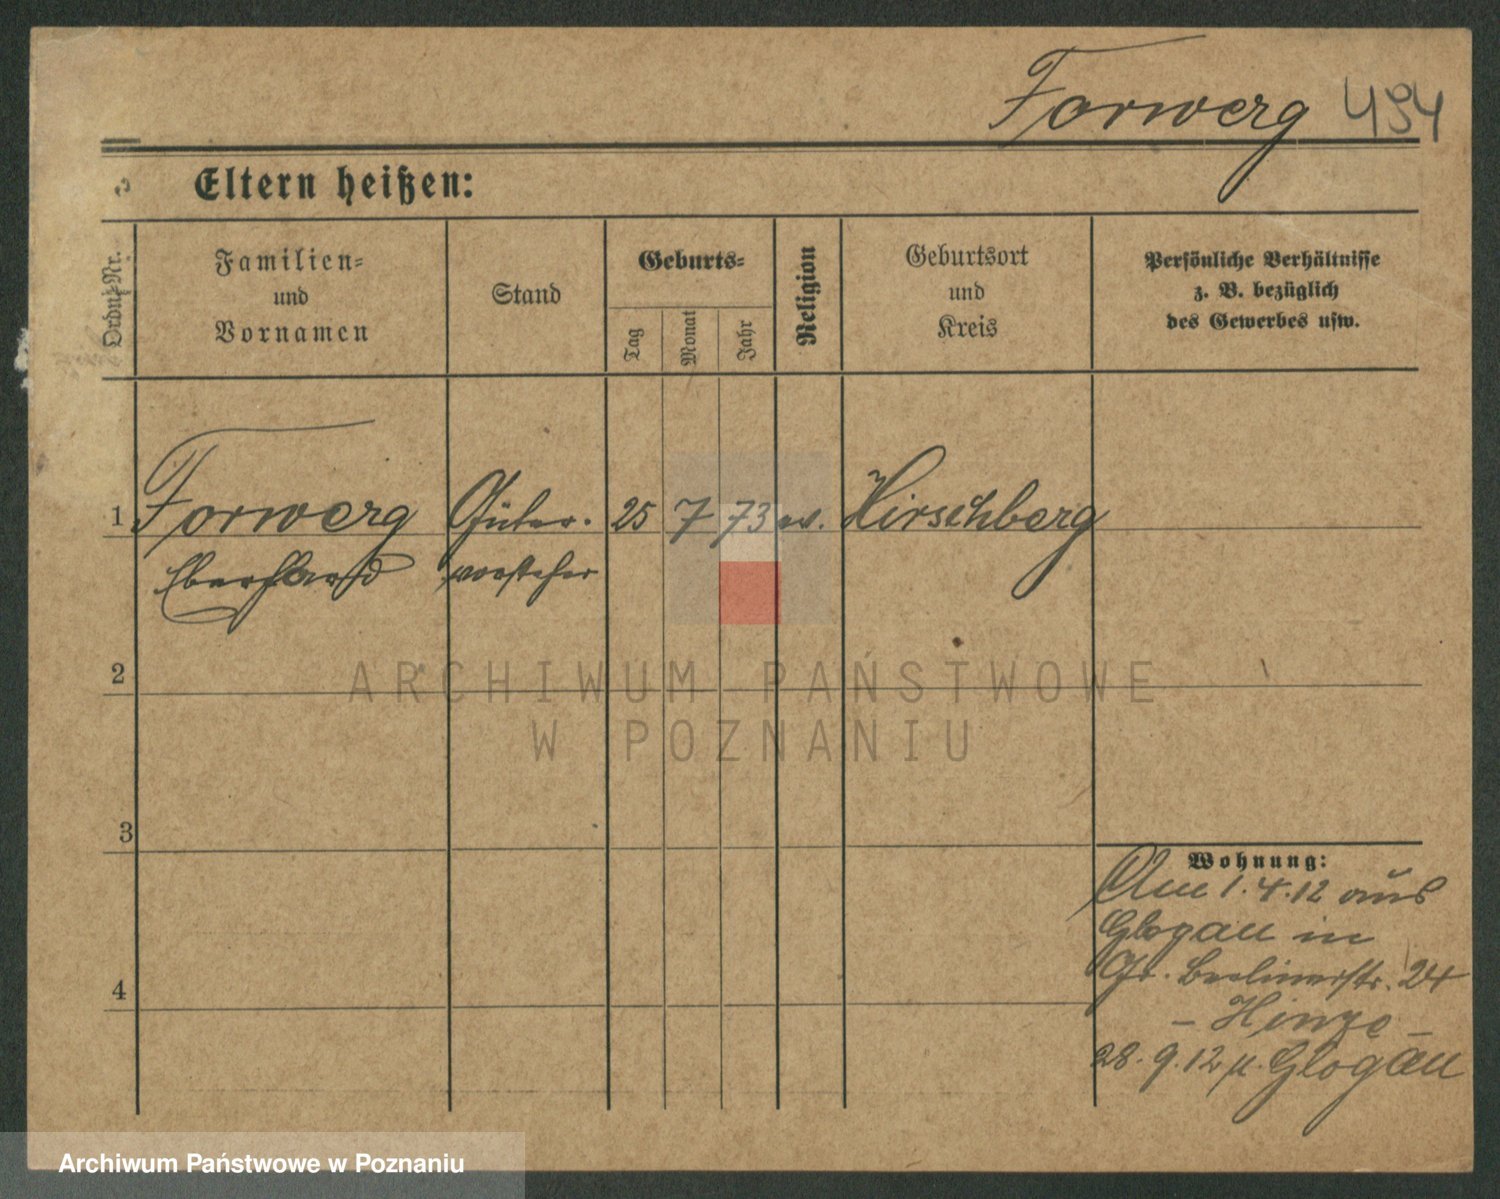 Forwerg 494
Eltern heißen:
Ordn.-Nr.
Familien-
und
Vornamen
Stand
Geburts-
Tag
Monat
Jahr
Religion
Geburtsort
und
Kreis
Persönliche Verhältnisse
z. B. bezüglich
des Gewerbes usw.
1 Forwerg Güter- 25 7 73 ev. Hirschberg
Eberhard vorsteher
2
3
4
Wohnung:
Am 1.4.12 aus
Glogau in
Gr. Berlinerstr. 24
- Hinze -
28.9.12 n. Glogau
ARCHIWUM PAŃSTWOWE
W POZNANIU
Archiwum Państwowe w Poznaniu